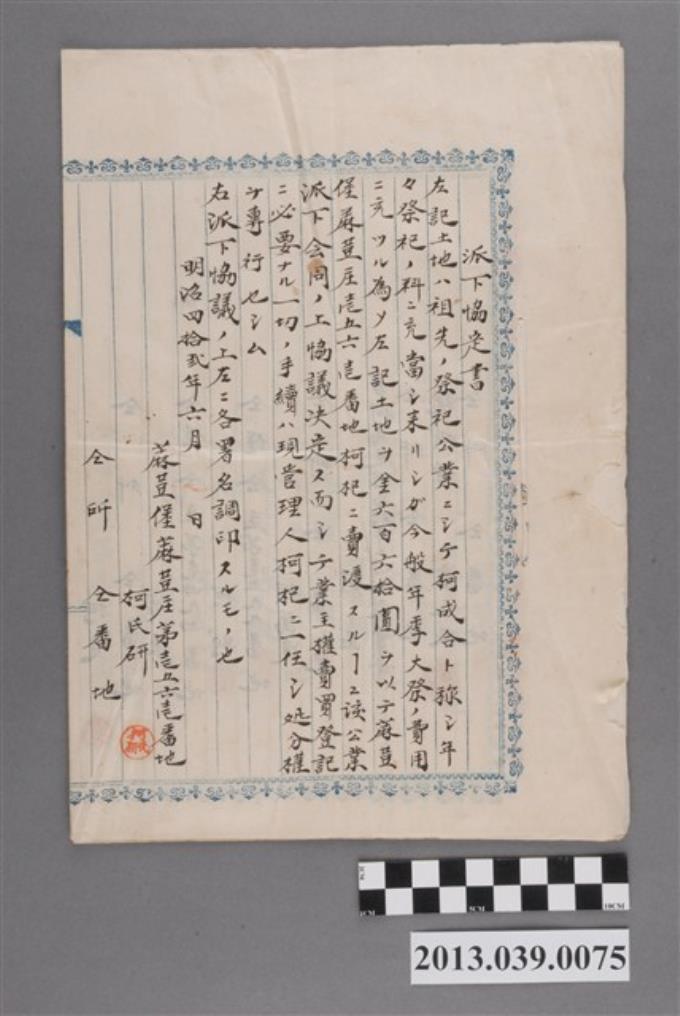 派下協定書
左記土地ハ祖先ノ祭祀公業ニシテ柯成合ト称シ年
々祭祀ノ料ニ充當シ来リシガ今般年季大祭ノ費用
ニ充ツル為メ左記土地ヲ金六百六拾圓ヲ以テ蔴荳
堡蔴荳庄壱五六壱番地柯杞ニ賣渡スルヿニ該公業
派下会同ノ上協議决定ス而シテ業主權賣買登記
ニ必要ナル一切ノ手續ハ現管理人柯杞ニ一任シ処分權
ヲ專行セシム
右派下協議ノ上左ニ各署名調印スルモノ也
明治四拾弍年六月 日
蔴荳堡蔴荳庄第壱五六壱番地
柯氏研
仝所 仝番地
2013.039.0075
1CM
5CM
10CM